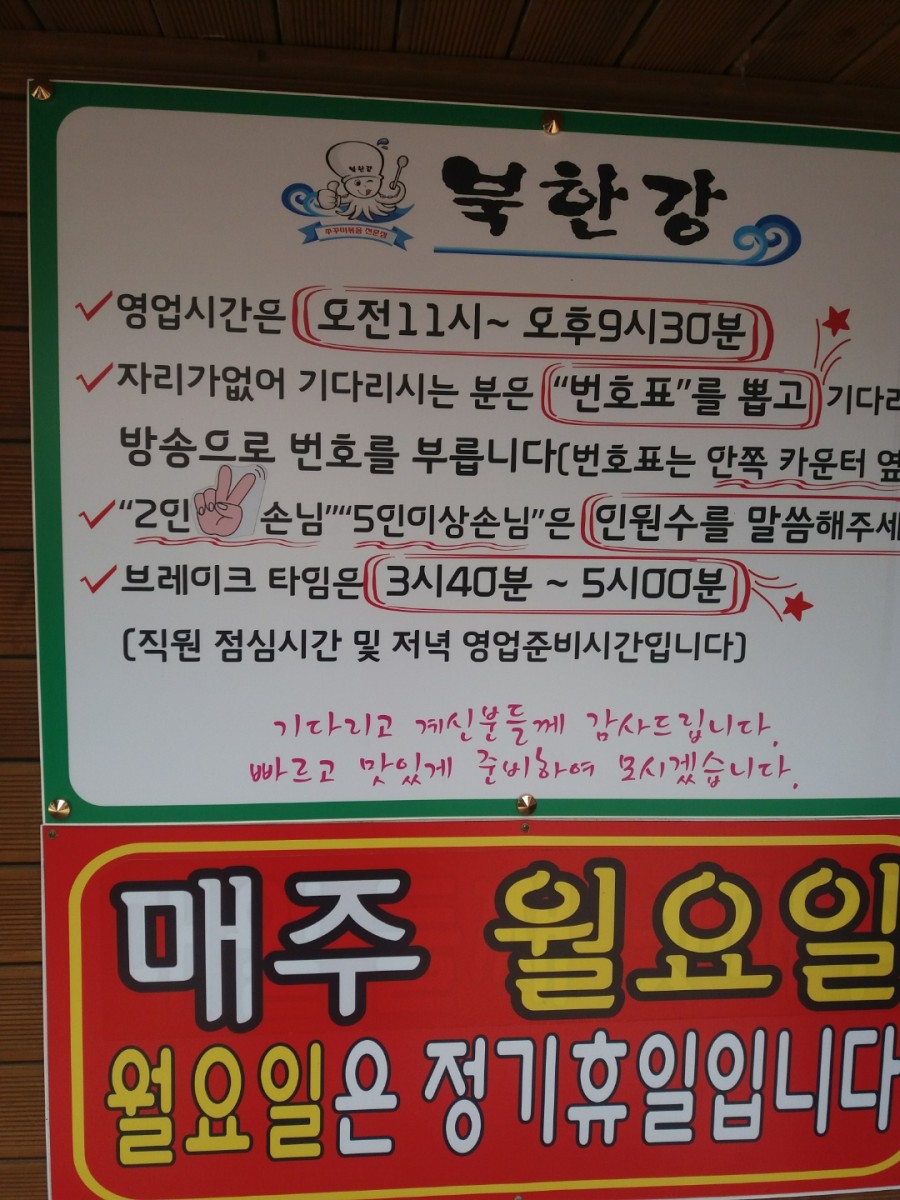 북한강
쭈꾸미볶음 전문점
북한강
영업시간은 오전11시~ 오후9시30분
자리가없어 기다리시는 분은 “번호표”를 뽑고 기다리
방송으로 번호를 부릅니다(번호표는 안쪽 카운터 옆
“2인 손님”“5인이상손님”은 인원수를 말씀해주세
브레이크 타임은 3시40분 ~ 5시00분
(직원 점심시간 및 저녁 영업준비시간입니다)
기다리고 계신분들께 감사드립니다.
빠르고 맛있게 준비하여 모시겠습니다.
매주 월요일
월요일은 정기휴일입니다